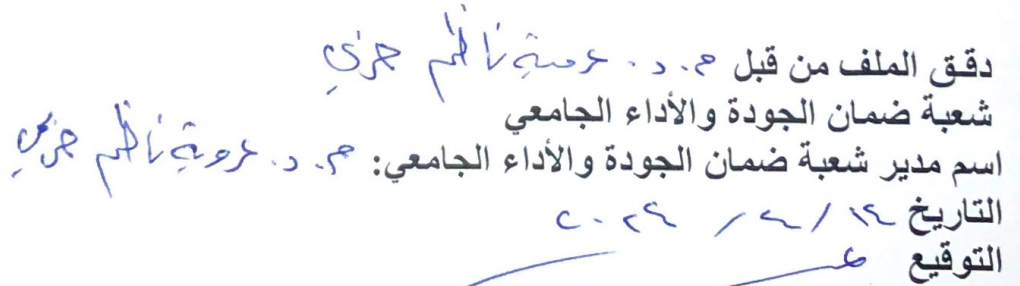 دقق الملف من قبل م. د. عروبة ناظم حمزي
شعبة ضمان الجودة والأداء الجامعي
اسم مدير شعبة ضمان الجودة والأداء الجامعي: م. د. عروبة ناظم
التاريخ ١٤ / ٤ / ٢٠٢٤
التوقيع